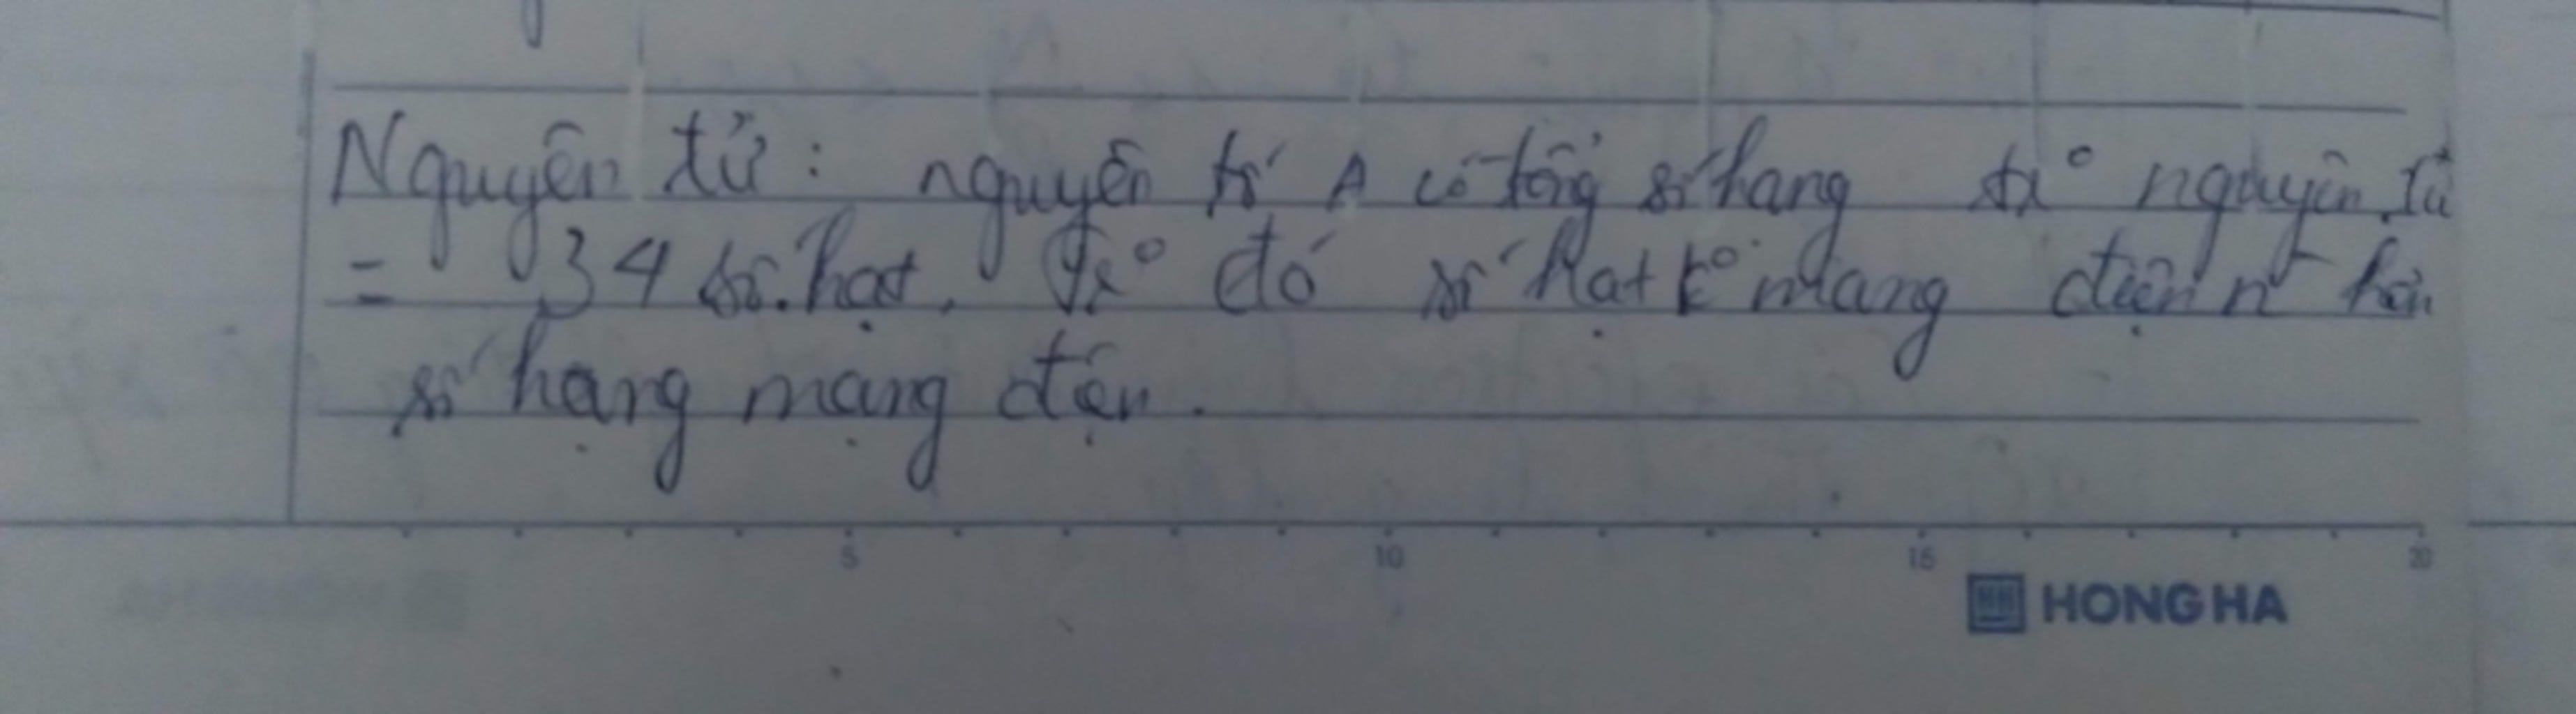 Nguyên tử : nguyên tố A có tổng số hang tr° nguyên tử
= 34 số. hạt. Tr° đó số hạt k° mang điện n hơn
số hạng mạng điện.
5 10 15 20
HONG HA